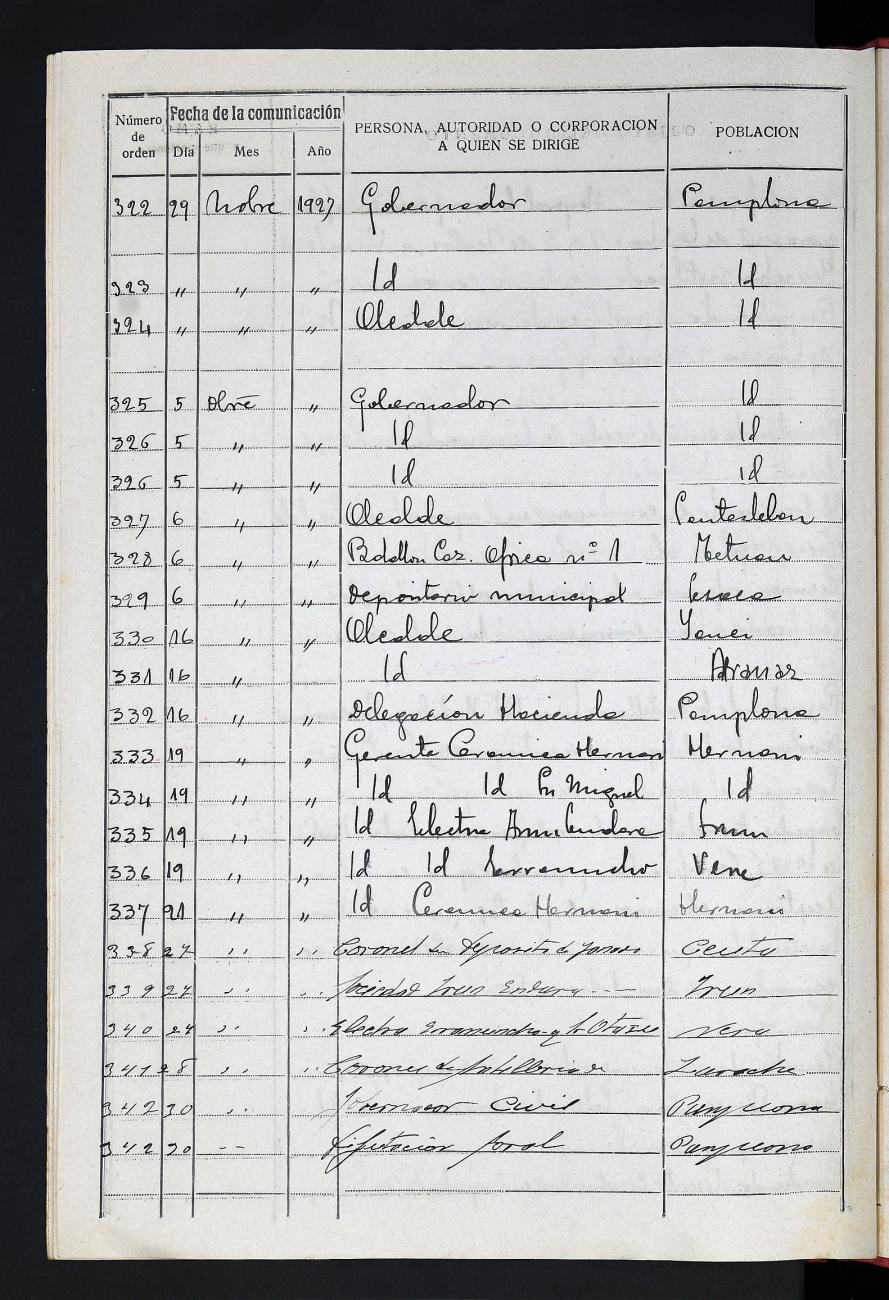 Número de orden Fecha de la comunicación PERSONA, AUTORIDAD O CORPORACION A QUIEN SE DIRIGE POBLACION
Día Mes Año
322 29 Nobre 1927 Gobernador Pamplona
323 " " " Id Id
324 " " " Alcalde Id
325 5 Dbre " Gobernador Id
326 5 " " Id Id
326 5 " " Id Id
327 6 " " Alcalde Santesteban
328 6 " " Batallon Caz. Africa nº 1 Tetuan
329 6 " " Depositario municipal Lesaca
330 16 " " Alcalde Yanci
331 16 " Id Aranaz
332 16 " " Delegación Hacienda Pamplona
333 19 " " Gerente Ceramica Hernani Hernani
334 19 " " Id Id Sn Miguel Id
335 19 " " Id Electra Irun
336 19 " " Id Id Vera
337 21 " " Id Ceramica Hernani Hernani
338 27 " " Coronel Deposito de Ceuta
339 27 " " Sociedad Irun Endara Irun
340 27 " " Electra Vera
341 28 " " Coronel de Artilleria de Larache
342 30 " Gobernador Civil Pamplona
342 30 " Diputacion Foral Pamplona